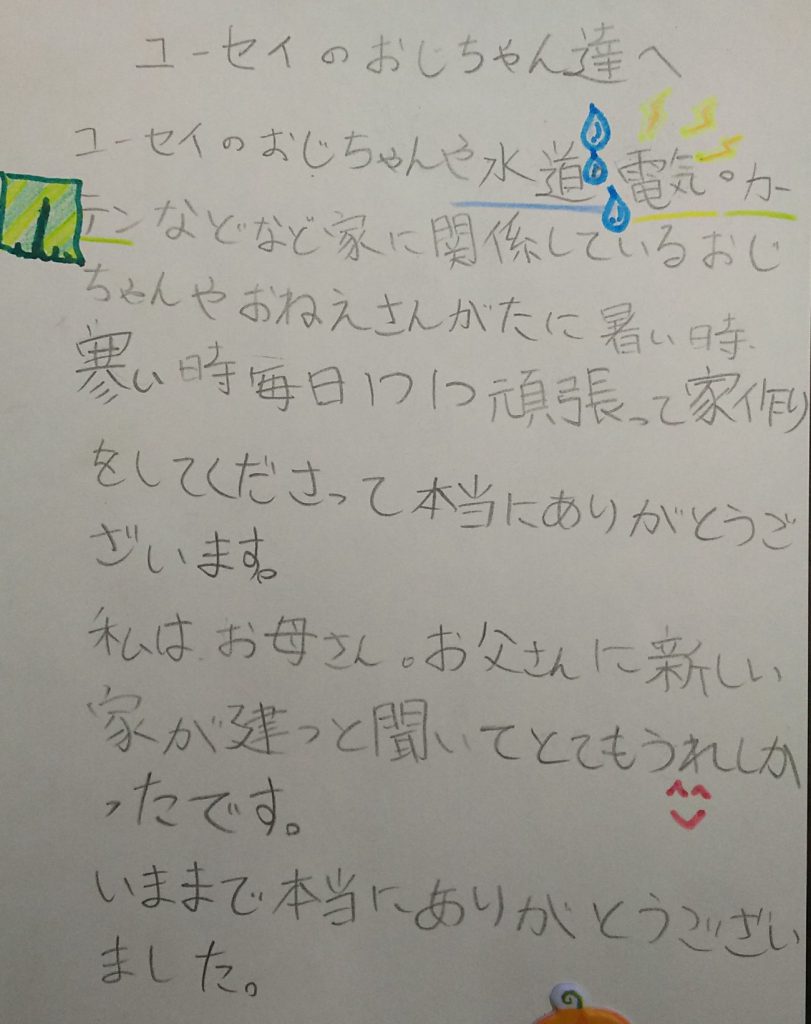 ユーセイのおじちゃん達へ
ユーセイのおじちゃんや水道電気。カー
テンなどなど家に関係しているおじ
ちゃんやおねえさんがたに暑い時、
寒い時毎日1つ1つ頑張って家作り
をしてくださって本当にありがとうご
ざいます。
私はお母さん。お父さんに新しい
家が建っと聞いてとてもうれしか
ったです。
いままで本当にありがとうござい
ました。